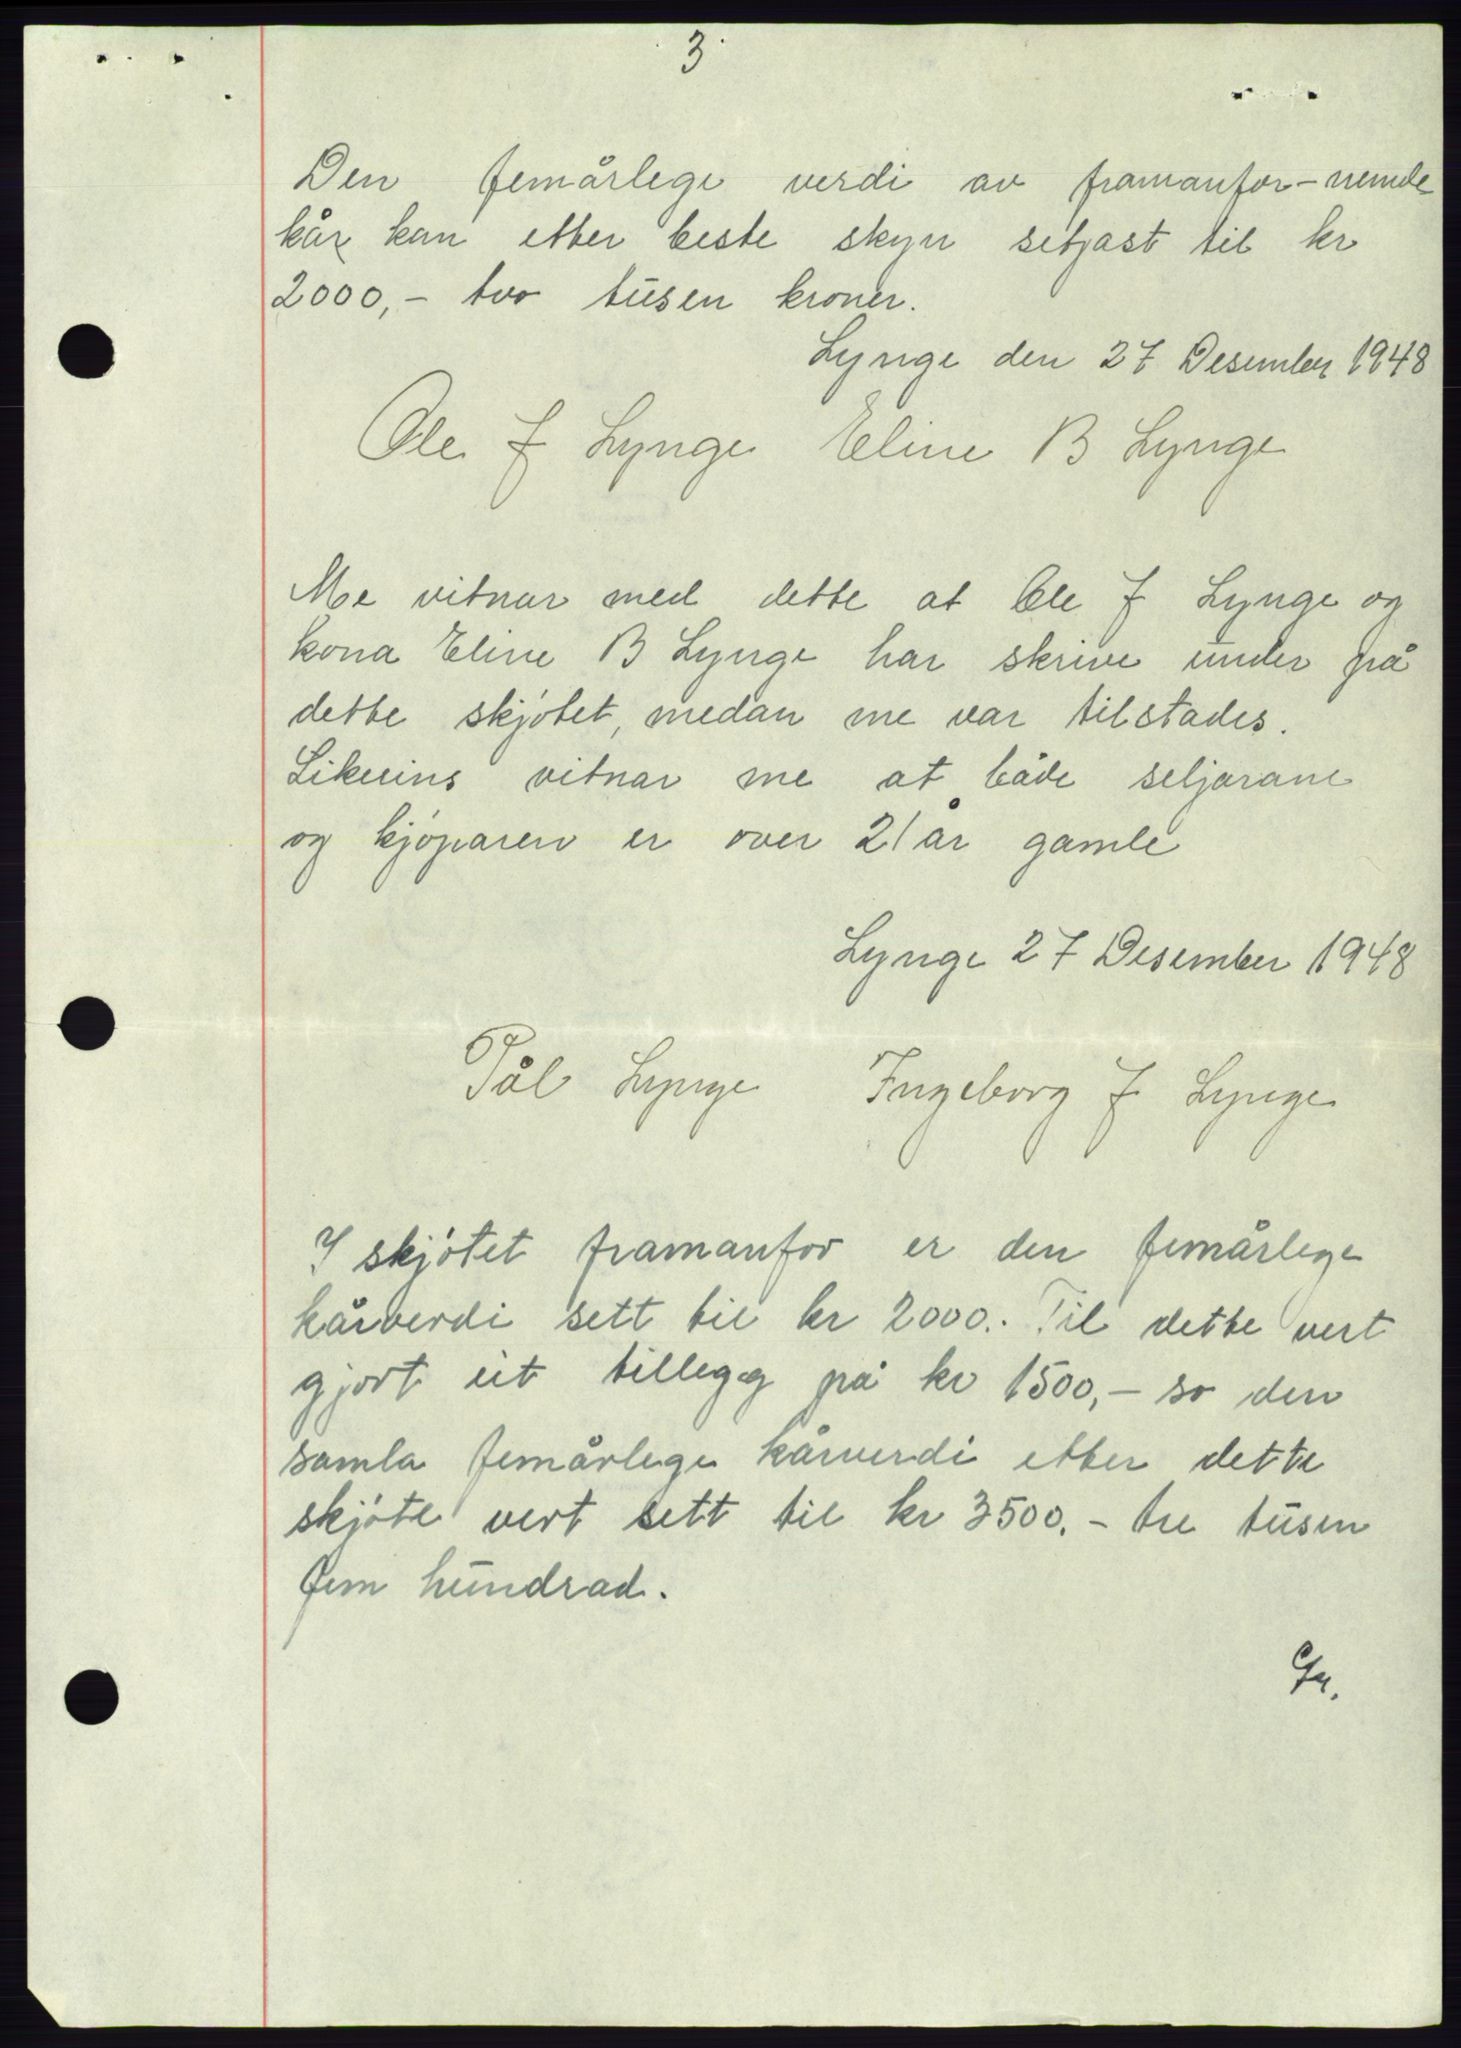 3
Den femårlege verdi av framanfor-nemde
kår kan etter beste skyn setjast til kr
2000,- tvo tusen kroner.
Lynge den 27 Desember 1948
Ole J Lynge Eline B Lynge
Me vitnar med dette at Ole J Lynge og
kona Eline B Lynge har skrive under på
dette skjötet, medan me var tilstades.
Likeeins vitnar me at både seljarane
og kjöparen er over 21 år gamle
Lynge 27 Desember 1948
Pål Lynge Ingeborg J Lynge
I skjötet framanfor er den femårlege
kårverdi sett til kr 2000.- Til dette vert
gjort eit tillegg på kr 1500,- so den
samla femårlege kårverdi etter dette
skjöte vert sett til kr 3500.- tre tusen
fem hundrad.